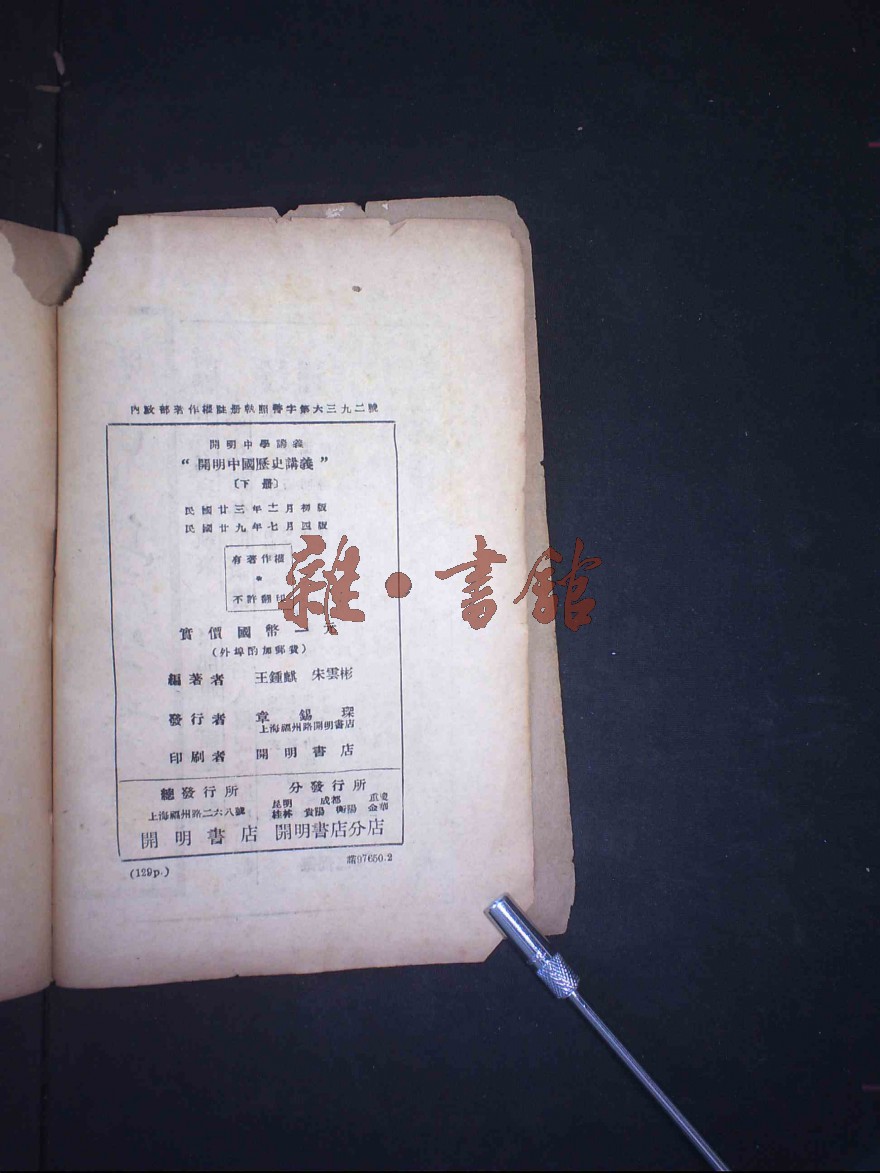 內政部著作權註册執照警字第六三九二號
開明中學講義
“開明中國歷史講義”
(下册)
民國廿三年十一月初版
民國廿九年七月四版
有著作權
不許翻印
雜·書館
實價國幣一元
(外埠酌加郵費)
編著者 王鍾麒 朱雲彬
發行者 章錫琛
上海福州路開明書店
印刷者 開明書店
總發行所 分發行所
上海福州路二六八號
昆明 成都 重慶
桂林 貴陽 衡陽 金華
開明書店 開明書店分店
(129p.)
97650.2